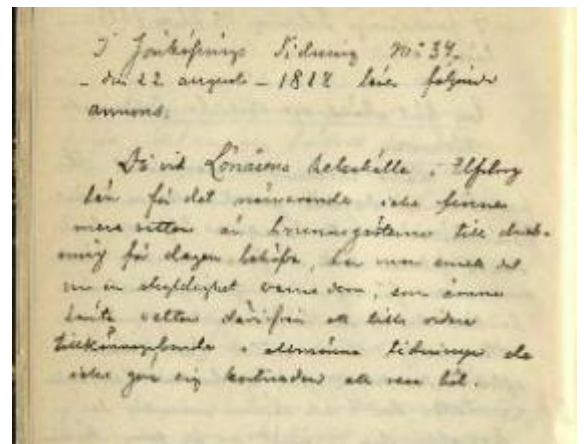 I Jönköpings Tidning No 34.
- den 22 augusti - 1818 läses följande
annons:
Då vid Lönåsens helsokälla i Elfsborg
län för det närvarande icke finnes
mera vatten än brunnsgästerna till
för dagen behöfva, har man ansett det
en skyldighet varna dem, som ämna
hämta vatten därifrån att till vidare
tillkännagifvande i allmänna tidningar de
icke göra sig kostnaden att resa dit.